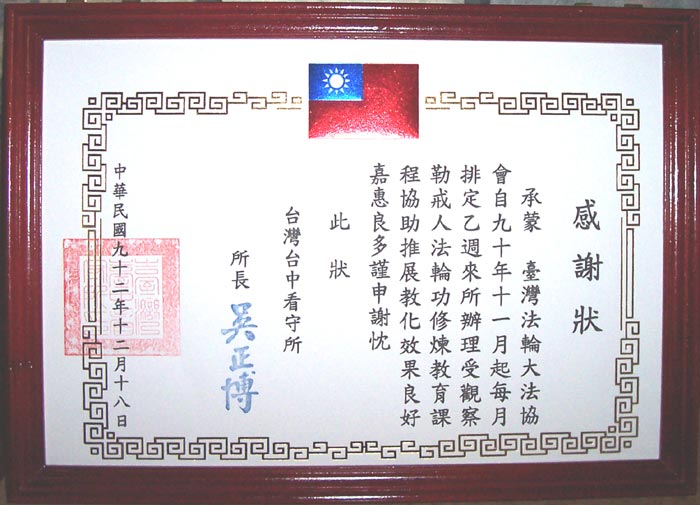 感謝狀
承蒙　臺灣法輪大法協
會自九十年十一月起每月
排定乙週來所辦理受觀察
勒戒人法輪功修煉教育課
程協助推展教化效果良好
嘉惠良多謹申謝忱
此狀
台灣台中看守所
所長　吳正博
中華民國九十二年十二月十八日